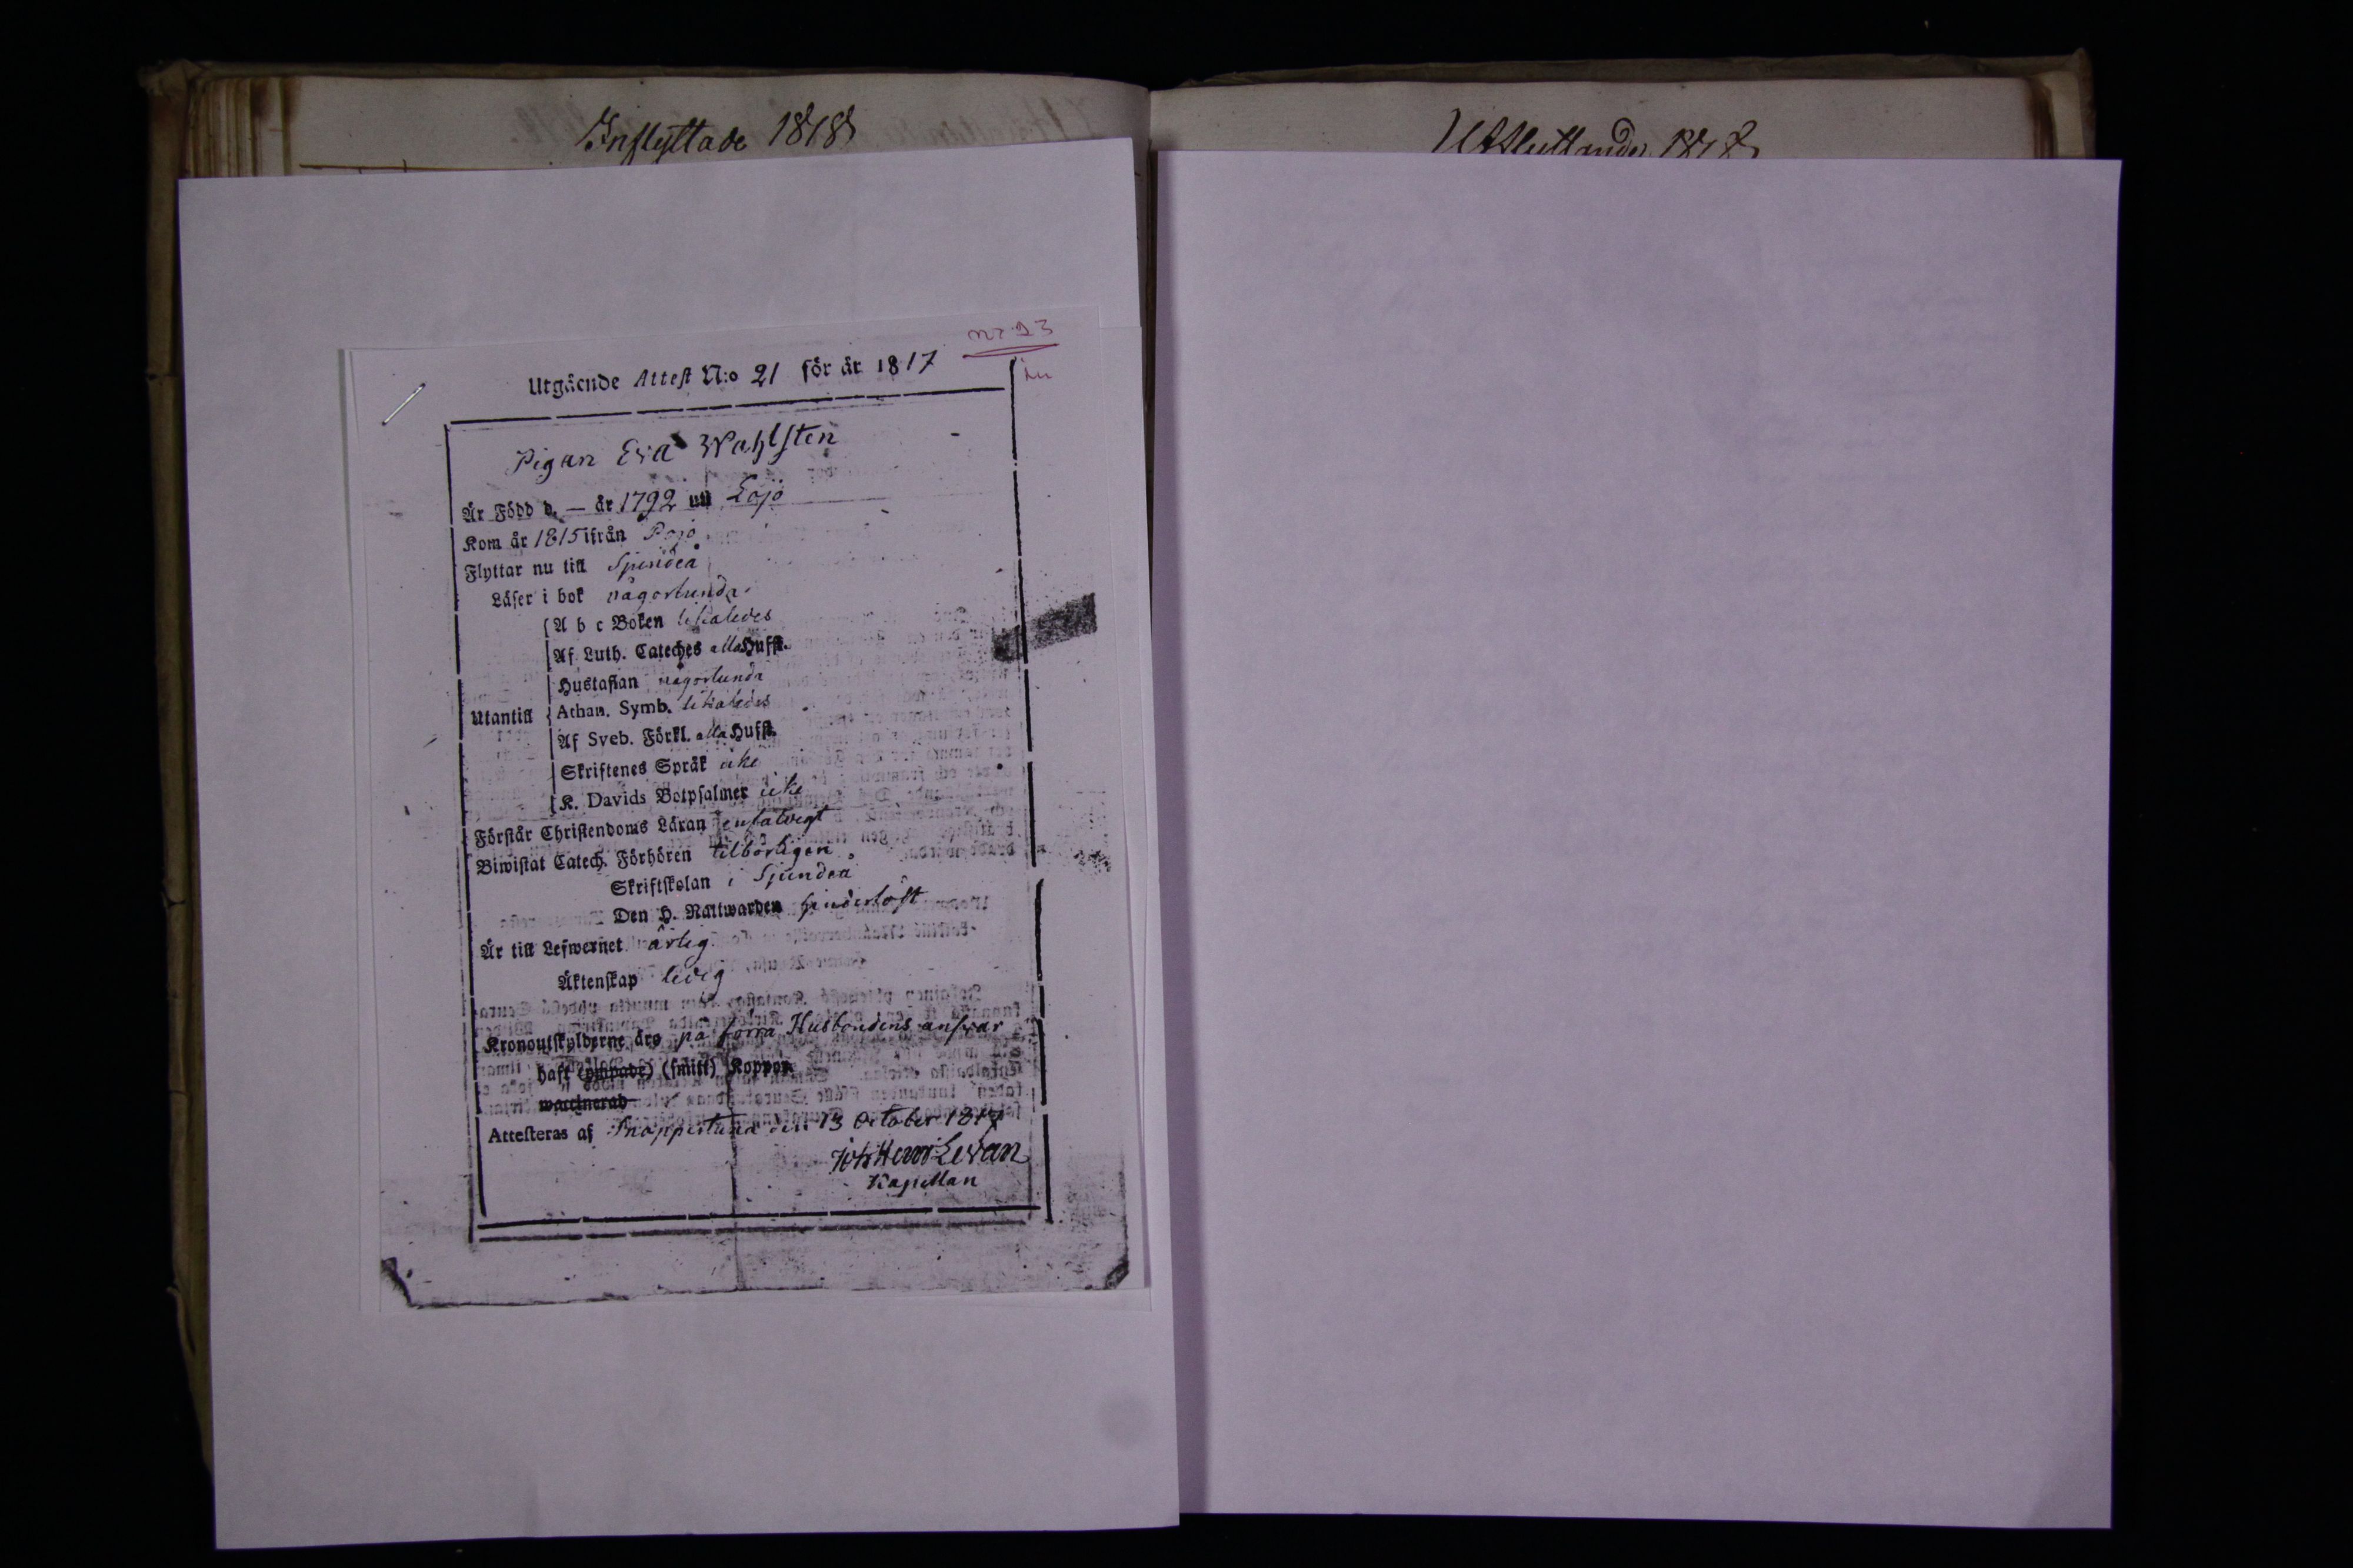 Inflyttade 1818
Utflyttande 1818
nr 93
Utgående Attest N:o 21 för år 1817
Pigan Eva Wahlsten
Är Född d. — år 1792 uti Lojo
Kom år 1815 ifrån Pojo
Flyttar nu till Sjundeå
Läser i bok någorlunda
A b c Boken likaledes
Af Luth. Cateches alla Hufst.
Hustaflan någorlunda
Utantill
Athan. Symb. likaledes
Af Sveb. Förkl. alla Hufst.
Skriftenes Språk icke
K. Davids Botpsalmer icke
Förstår Christendoms Läran enfaldigt
Biwistat Catech. Förhören tilbörligen
Skriftskolan i Sjundeå
Den H. Nattwarden hinderlöst
Är till Lefwernet ärlig
Äktenskap ledig
Kronoutskylderne äro på förra Husbondens answar
haft (ympade) (smitt) Koppor
waccinerad
Attesteras af Snappertuna den 13 October 1817
Joh Henr Levan
Kapellan